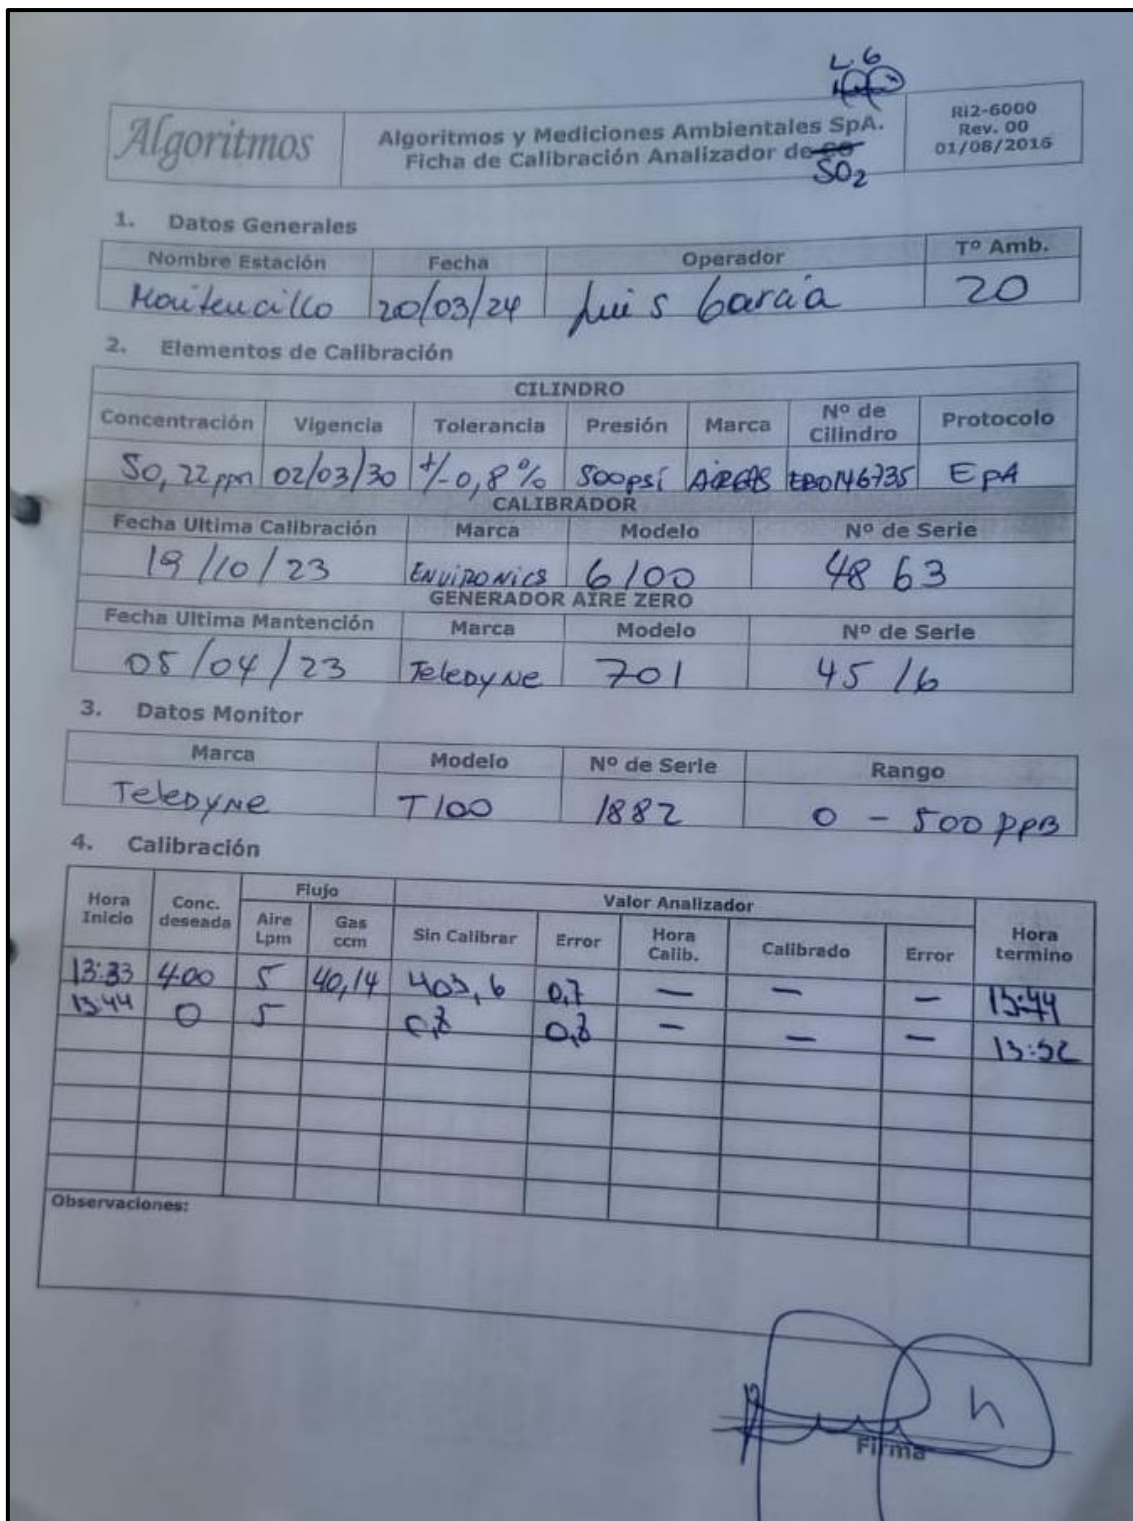 L.G
Algoritmos
Algoritmos y Mediciones Ambientales SpA.
Ficha de Calibración Analizador de CO
SO2
Ri2-6000
Rev. 00
01/08/2016
1. Datos Generales
Nombre Estación Fecha Operador Tº Amb.
Maitencillo 20/03/24 Luis Garcia 20
2. Elementos de Calibración
CILINDRO
Concentración Vigencia Tolerancia Presión Marca Nº de Cilindro Protocolo
50,22 ppm 02/03/30 +/-0,8 % 500psi AIRGAS EB0146735 EPA
CALIBRADOR
Fecha Ultima Calibración Marca Modelo Nº de Serie
19/10/23 ENVIRONICS 6100 4863
GENERADOR AIRE ZERO
Fecha Ultima Mantención Marca Modelo Nº de Serie
05/04/23 TeleDyNe 701 4516
3. Datos Monitor
Marca Modelo Nº de Serie Rango
TeleDyNe T100 1882 0 - 500 ppB
4. Calibración
Flujo Valor Analizador
Hora Inicio Conc. deseada Aire Lpm Gas ccm Sin Calibrar Error Hora Calib. Calibrado Error Hora termino
13:33 400 5 40,14 403,6 0,7 — — — 13:44
13:44 0 5 — — — 13:52
Observaciones:
Firma